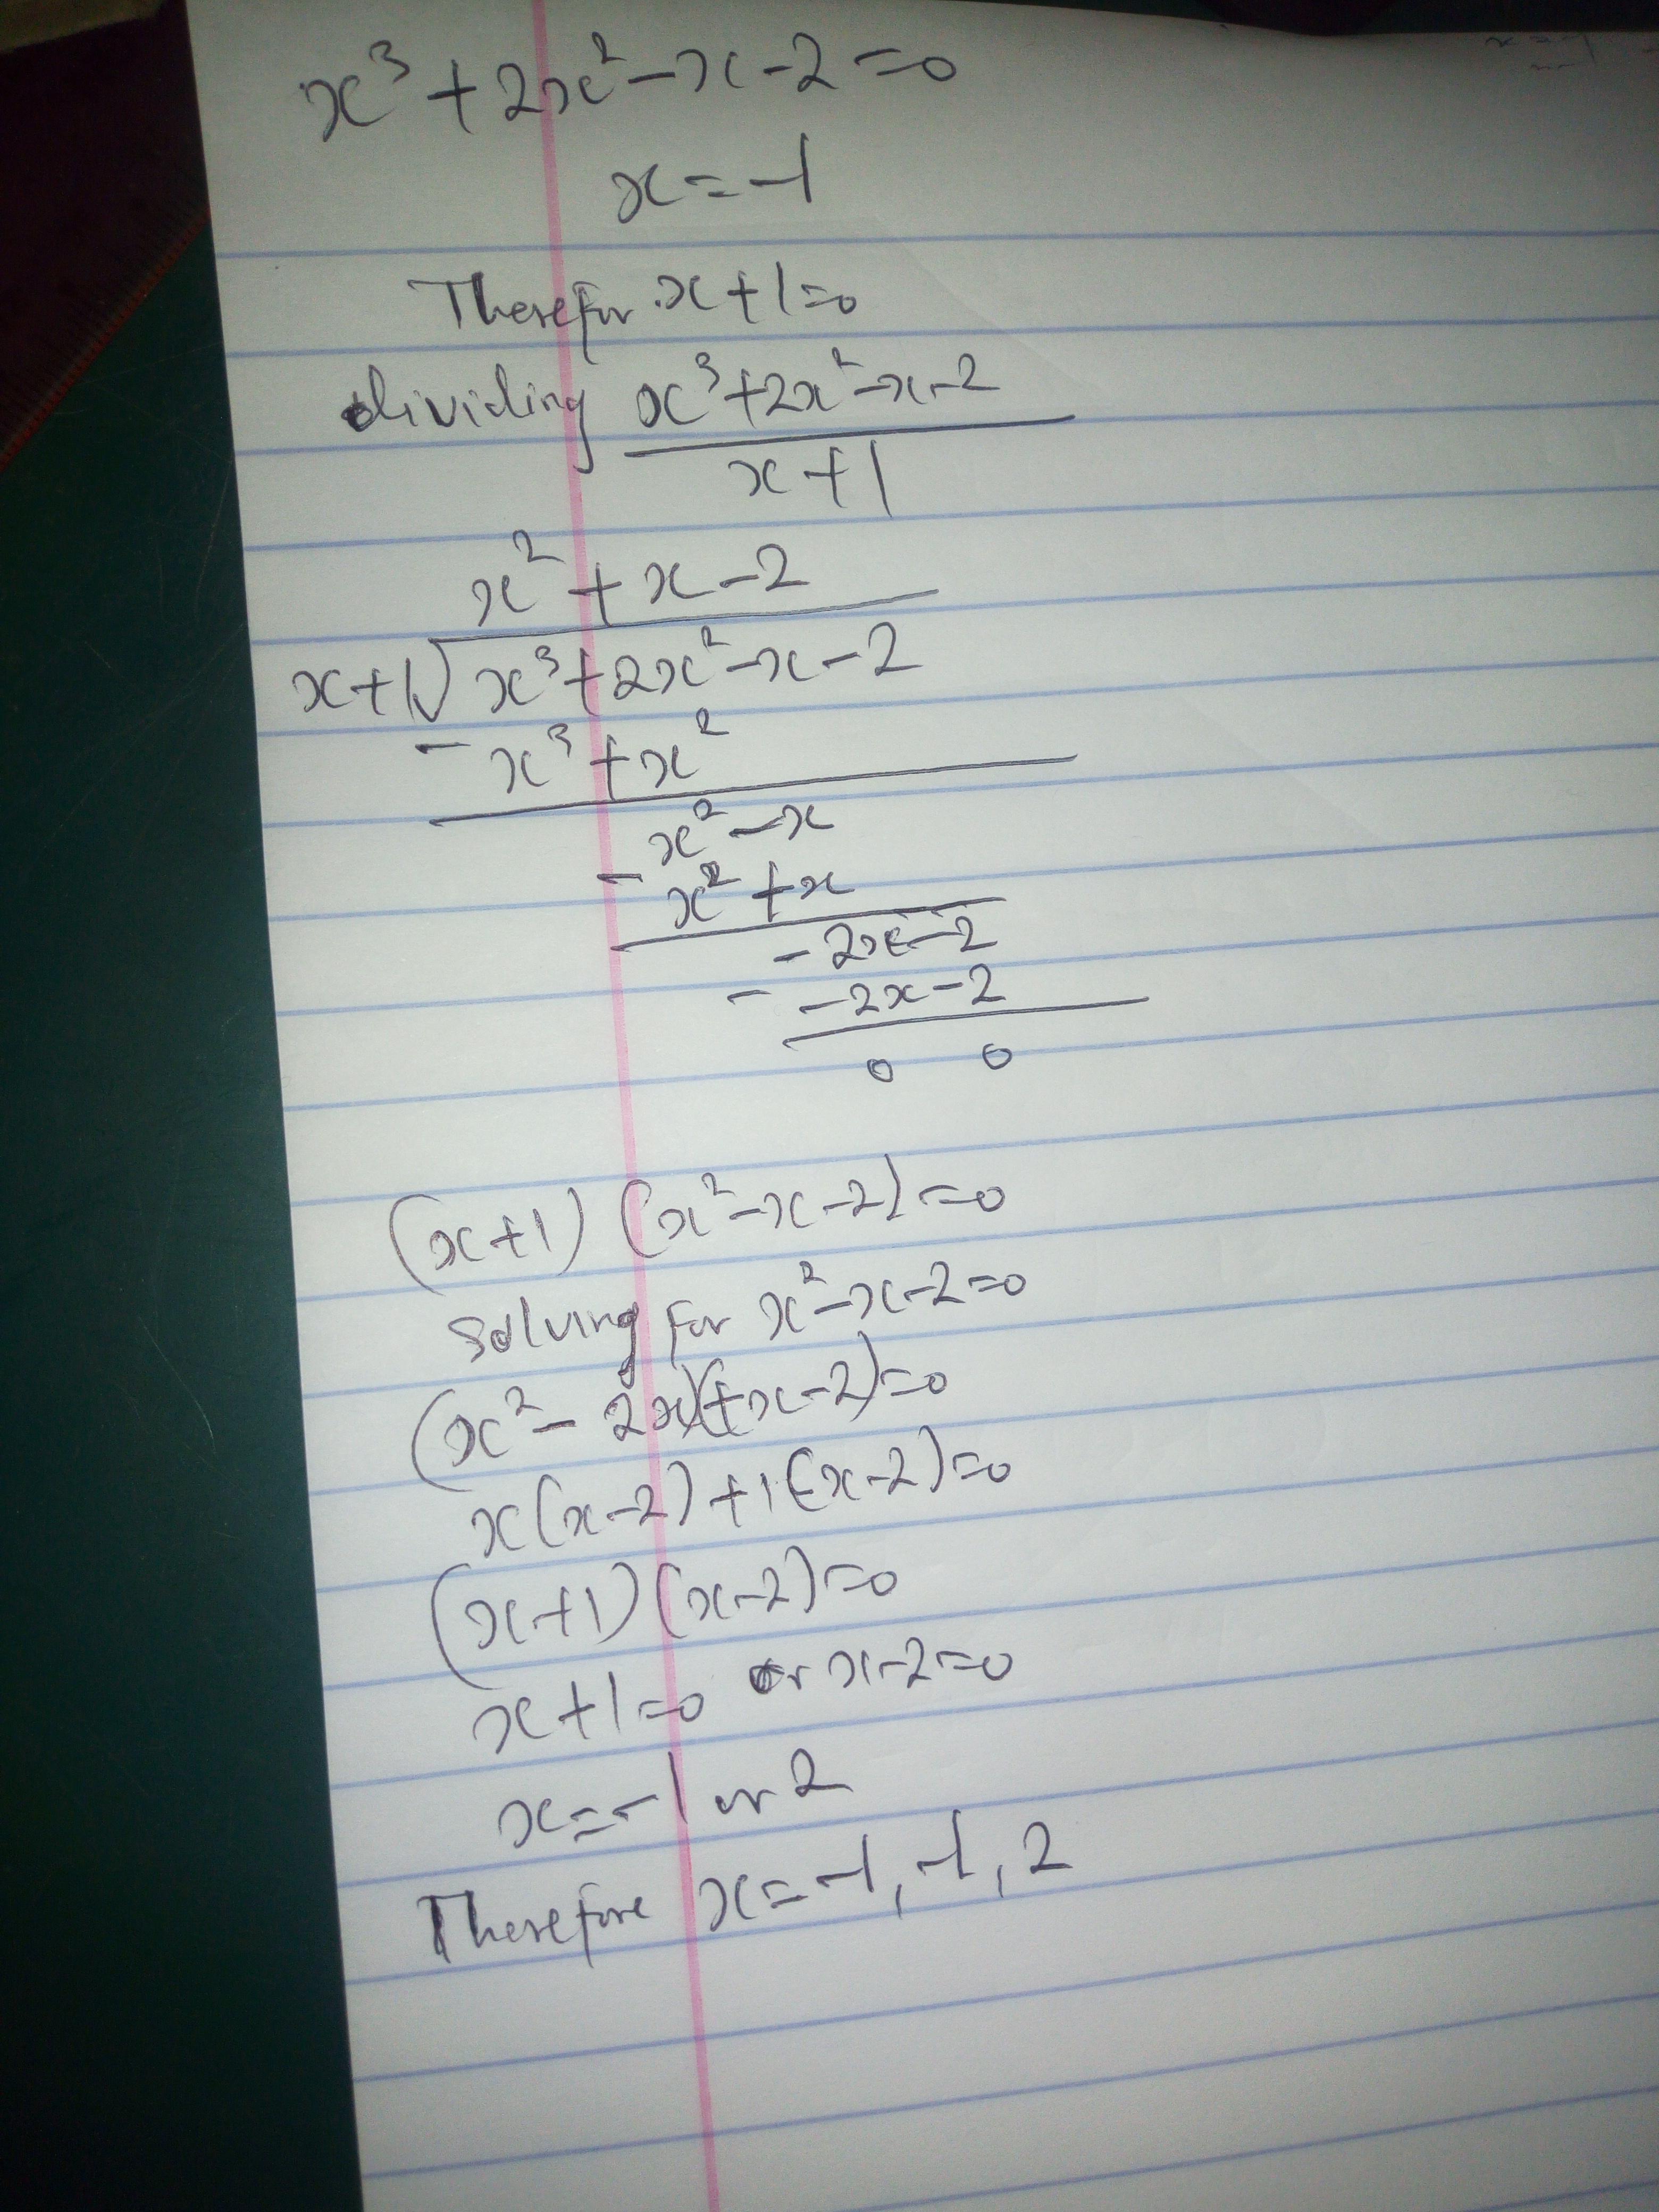 x³+2x²-x-2=0
x=-1
Therefor x+1=0
dividing x³+2x²-x-2
x+1
x²+x-2
x+1√x³+2x²-x-2
- x³+x²
x²-x
- x²+x
-2x-2
- -2x-2
0 0
(x+1)(x²-x-2)=0
solving for x²-x-2=0
(x²-2x)(+x-2)=0
x(x-2)+1(x-2)=0
(x+1)(x-2)=0
x+1=0 or x-2=0
x=-1 or 2
Therefore x=-1,-1,2